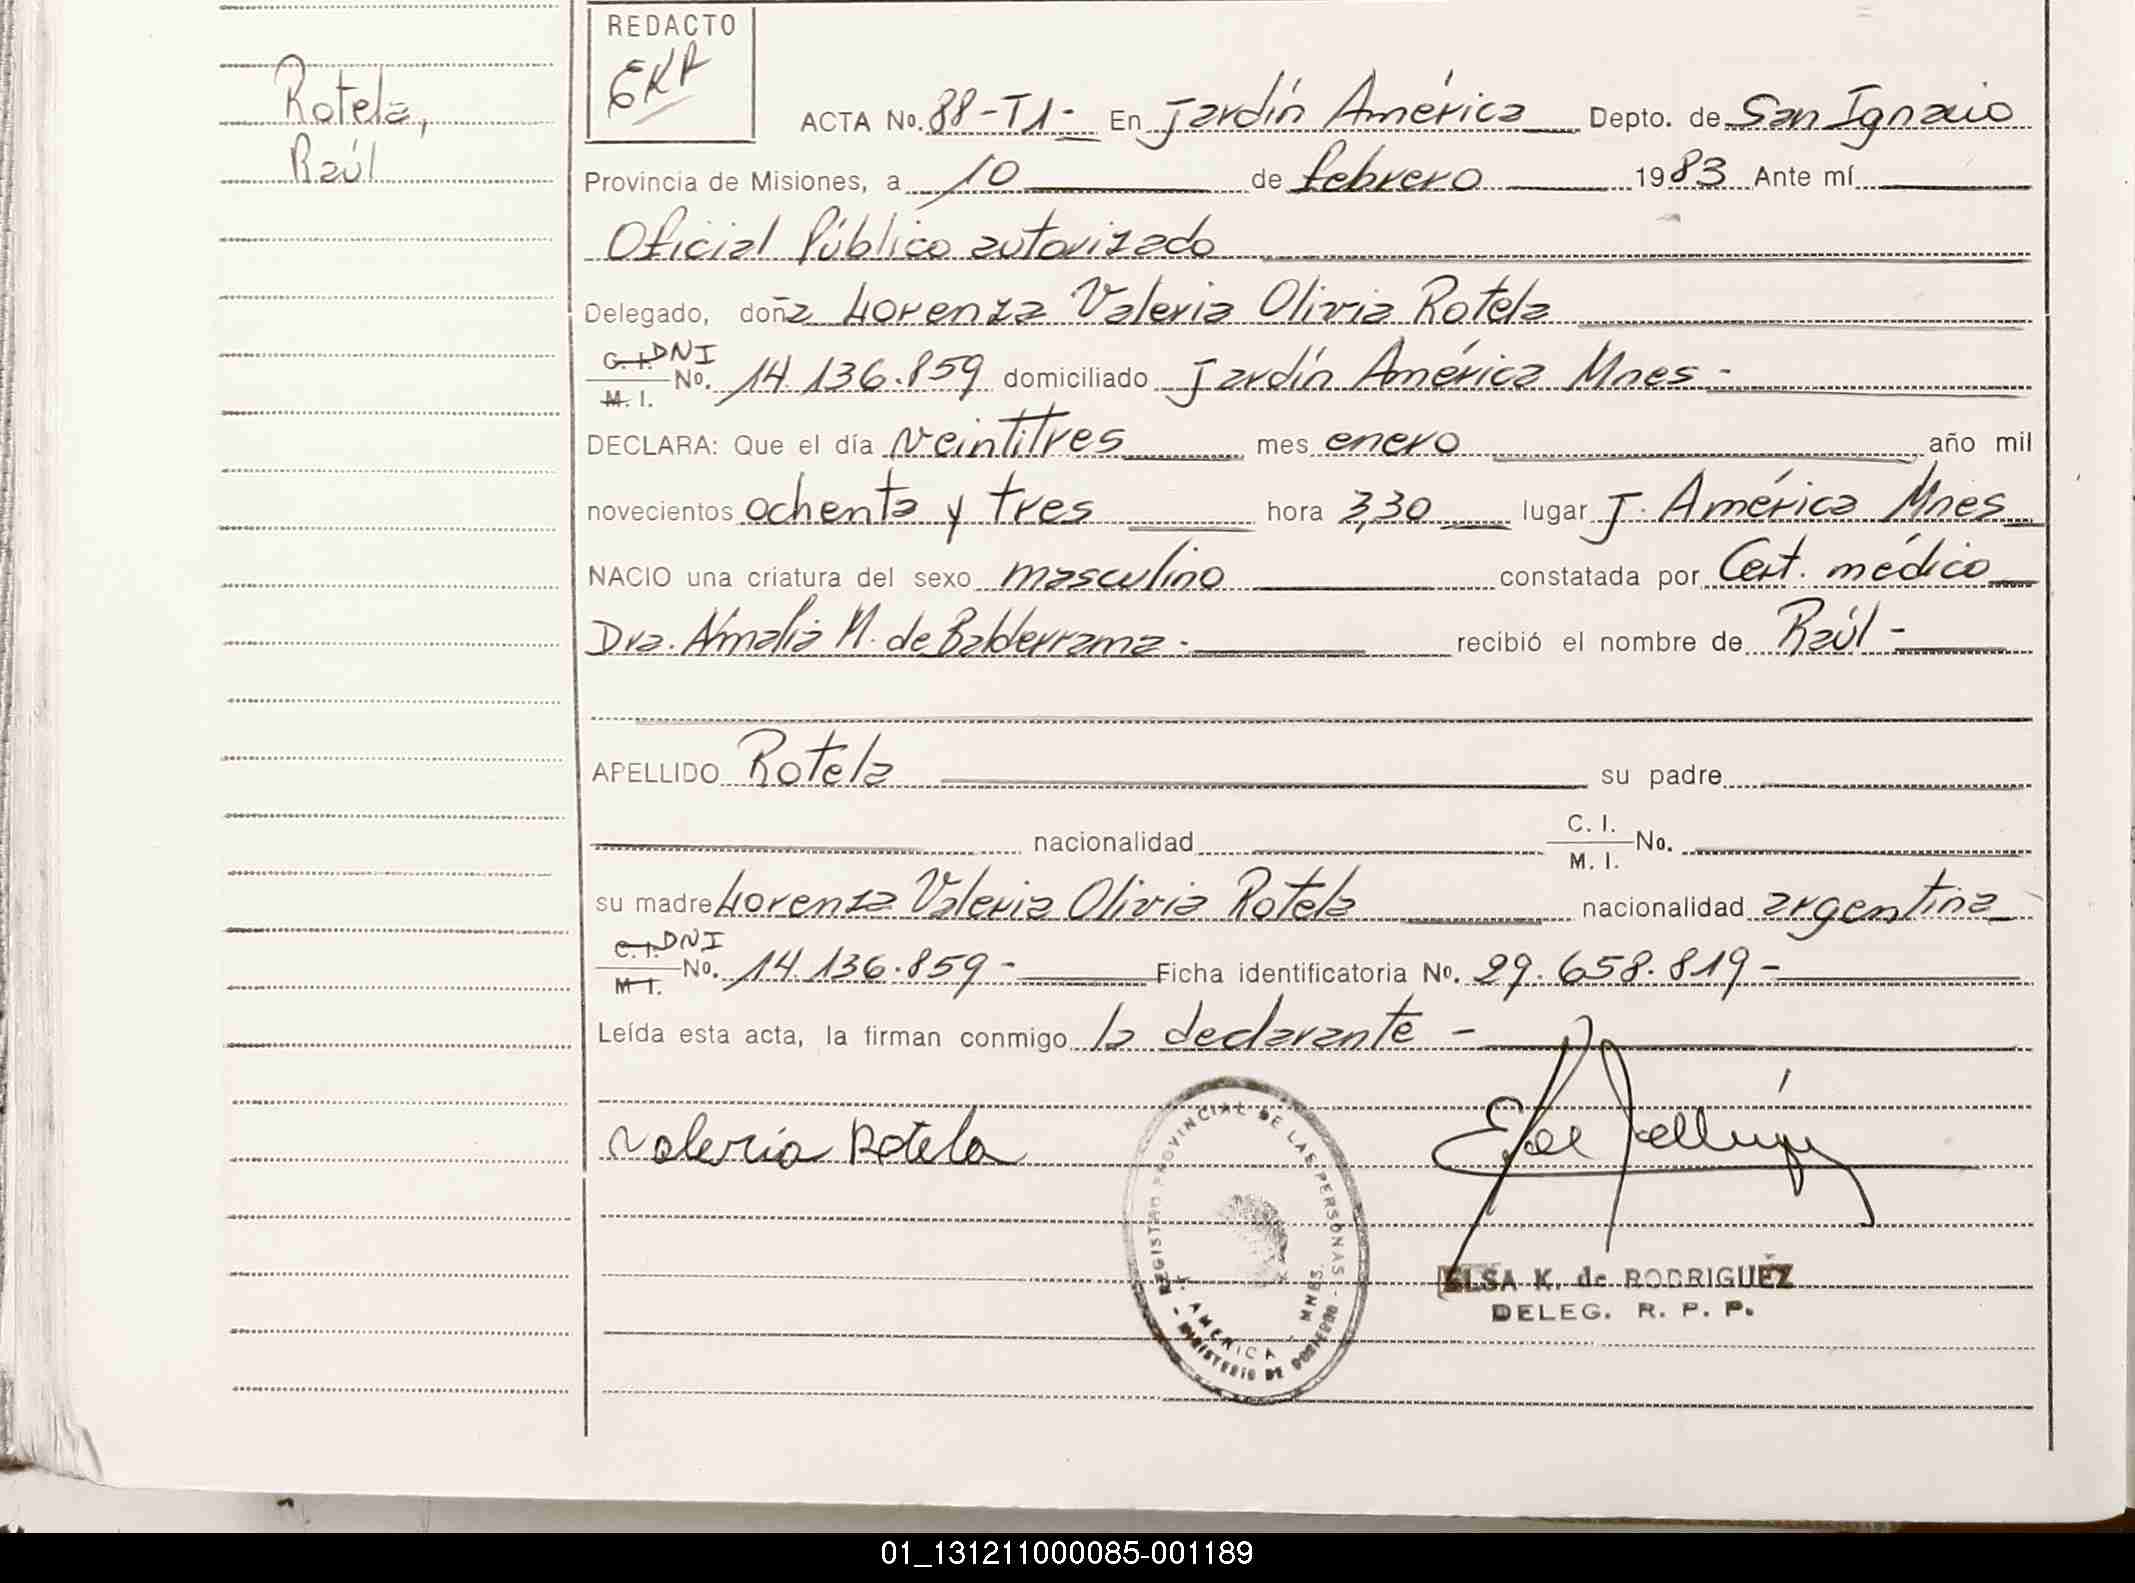 Rotela,
Raúl
REDACTO
EKR
ACTA No. 88-T1- En Jardín América Depto. de San Ignacio
Provincia de Misiones, a 10 de febrero 1983 Ante mí
Oficial Público autorizado
Delegado, doña Lorenza Valeria Olivia Rotela
C. I. DNI
M. I. No. 14.136.859 domiciliado Jardín América Mnes -
DECLARA: Que el día veintitres mes enero año mil
novecientos ochenta y tres hora 3,30 lugar J. América Mnes
NACIO una criatura del sexo masculino constatada por Cert. médico
Dra. Amalia M. de Balderrama - recibió el nombre de Raúl -
APELLIDO Rotela su padre
nacionalidad C. I.
M. I. No.
su madre Lorenza Valeria Olivia Rotela nacionalidad argentina
C. I. DNI
M. I. No. 14.136.859 - Ficha identificatoria No. 29.658.819 -
Leída esta acta, la firman conmigo la declarante -
Valeria Rotela
REGISTRO PROVINCIAL DE LAS PERSONAS
J. AMERICA - MNES.
- MINISTERIO DE GOBIERNO -
ELSA K. de RODRIGUEZ
DELEG. R. P. P.
01_131211000085-001189